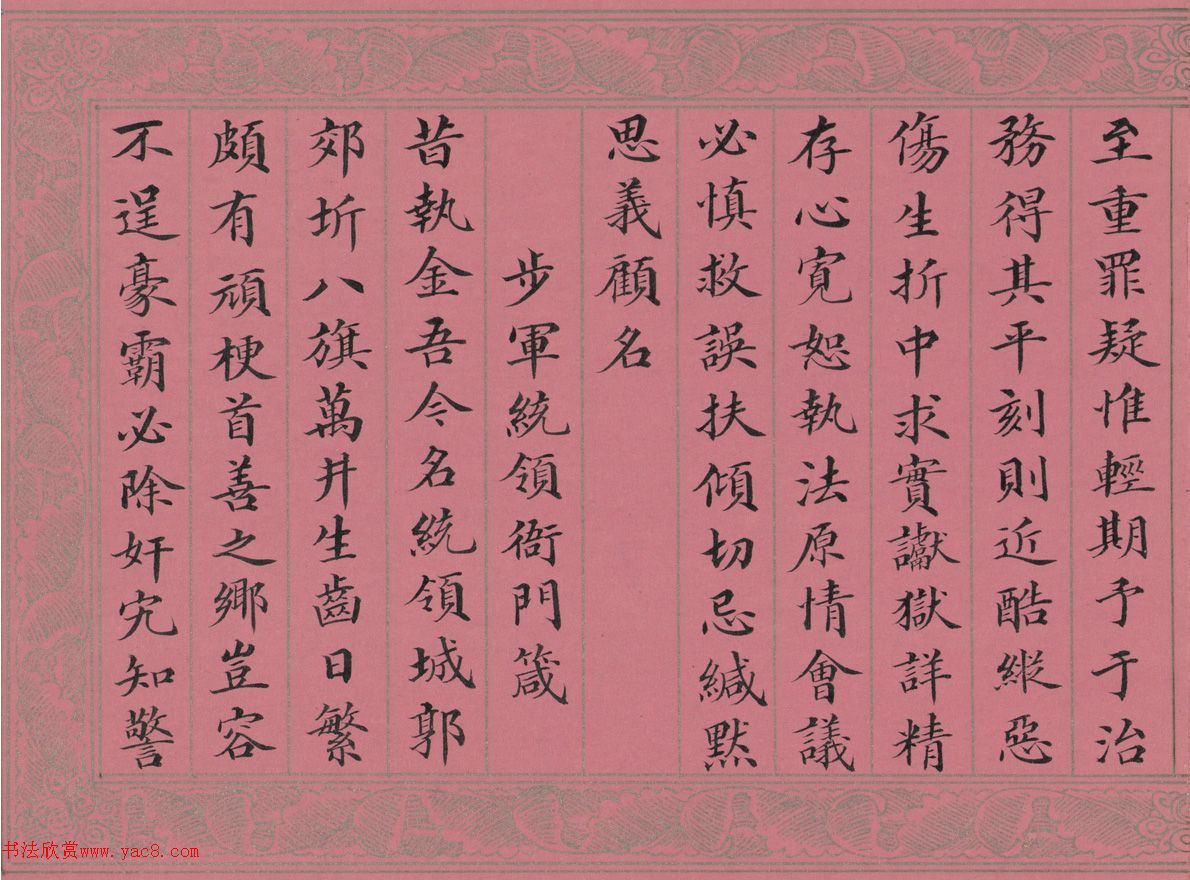 至重罪疑惟輕期予于治
務得其平刻則近酷縱惡
傷生折中求實讞獄詳精
存心寬恕執法原情會議
必慎救誤扶傾切忌緘默
思義顧名
步軍統領衙門箴
昔執金吾今名統領城郭
郊圻八旗萬井生齒日繁
頗有頑梗首善之鄉豈容
不逞豪霸必除奸宄知警
书法欣赏www.yac8.com